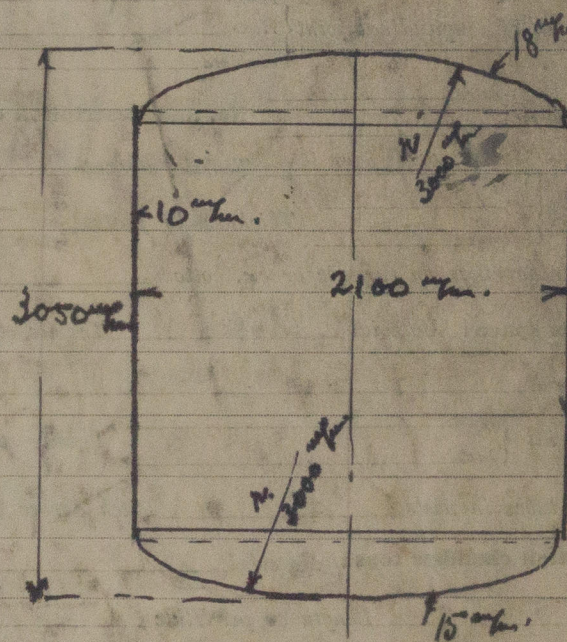 18 m/m
R 3000 m/m
10 m/m.
2100 m/m.
3050 m/m
R. 3000 m/m
15 m/m.